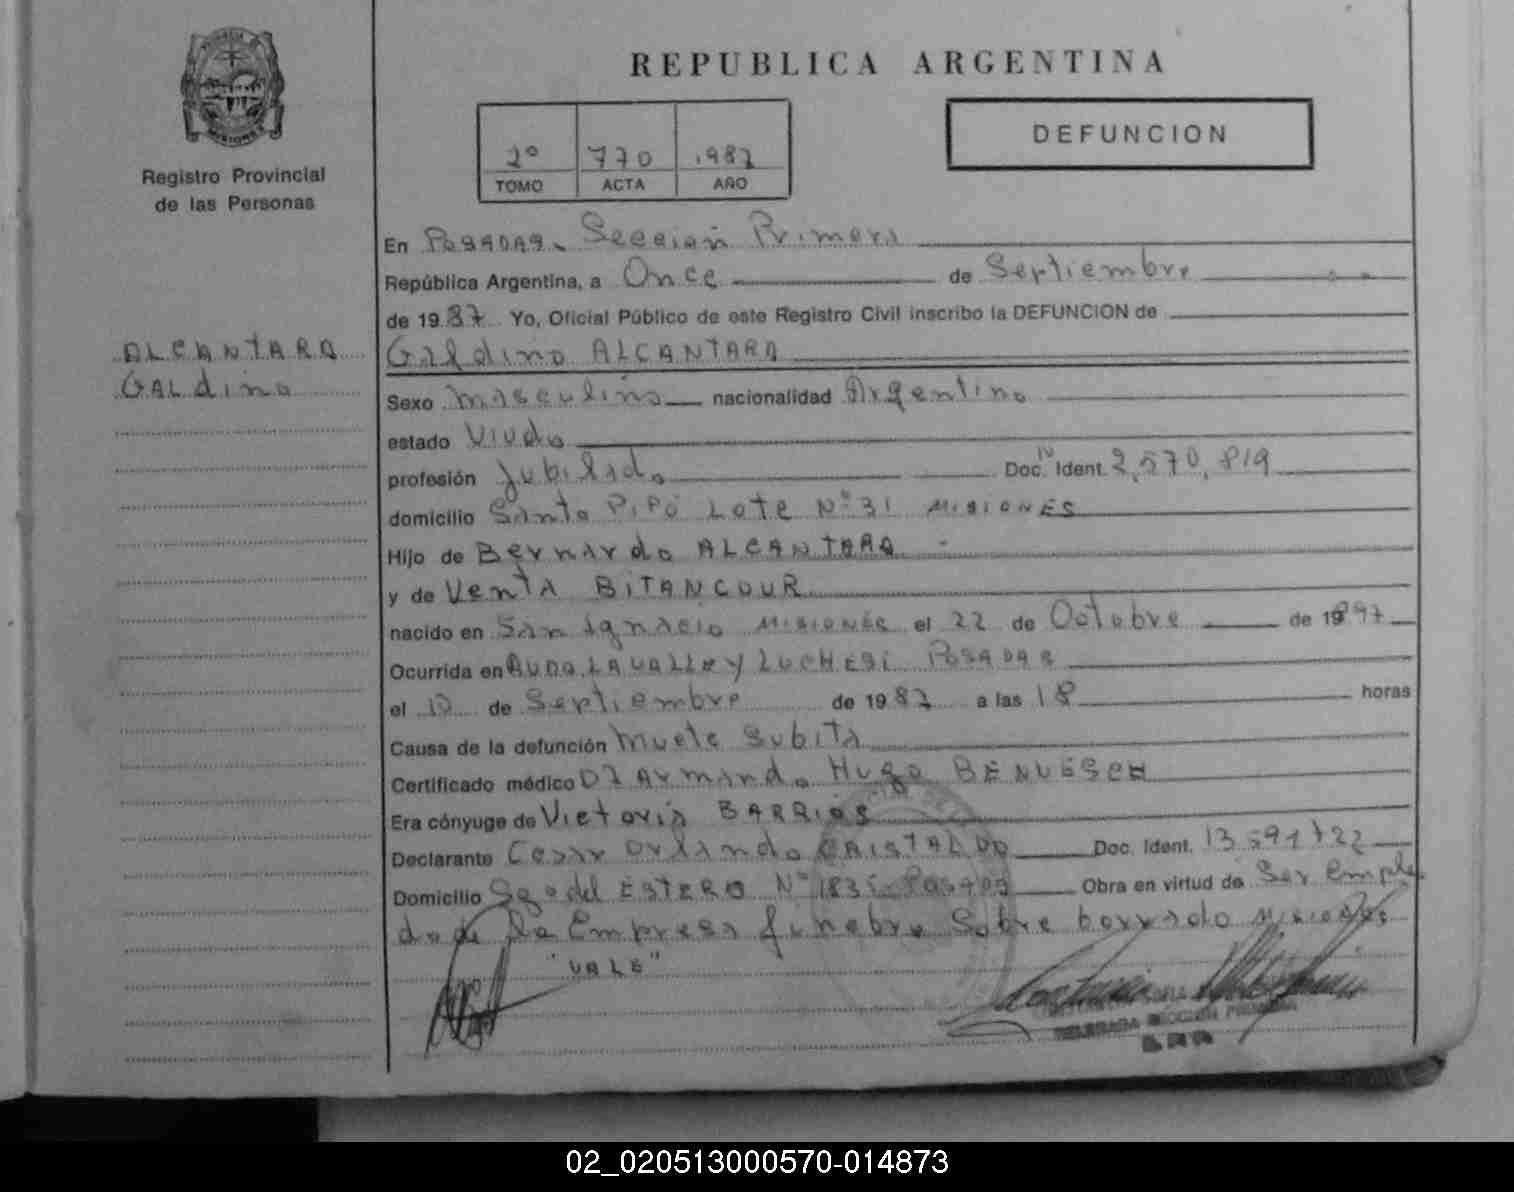 REPUBLICA ARGENTINA
PROVINCIA
MISIONES
Registro Provincial
de las Personas
2º 770 1987
TOMO ACTA AÑO
DEFUNCION
ALCANTARA
GALdino
En POSADAS. Seccion Primera
República Argentina, a Once de Septiembre
de 1987 Yo, Oficial Público de este Registro Civil inscribo la DEFUNCION de
Galdino ALCANTARA
Sexo masculino nacionalidad Argentino
estado Viudo
profesión Jubilado Doc. Ident. 2,570,819
domicilio Santo PiPó Lote Nº 31 MISIONES
Hijo de Bernardo ALCANTARA -
y de Venta BITANCOUR
nacido en San Ignacio MISIONES el 22 de Octubre de 1897
Ocurrida en AVDA. LAVALLE y LUCHESI POSADAS
el 10 de Septiembre de 1987 a las 18 horas
Causa de la defunción Muete Subita
Certificado médico Dr Armando Hugo BENUESCH
Era cónyuge de Victoria BARRIOS
Declarante Cesar Orlando CRISTALDO Doc. Ident. 13.591722
Domicilio Sgo del ESTERO Nº 1835 Posadas Obra en virtud de Ser Emplea
do de la Empresa funebre Sobre borrado MISIONES
"VALE"
DELEGADA SECCION PRIMERA
02_020513000570-014873